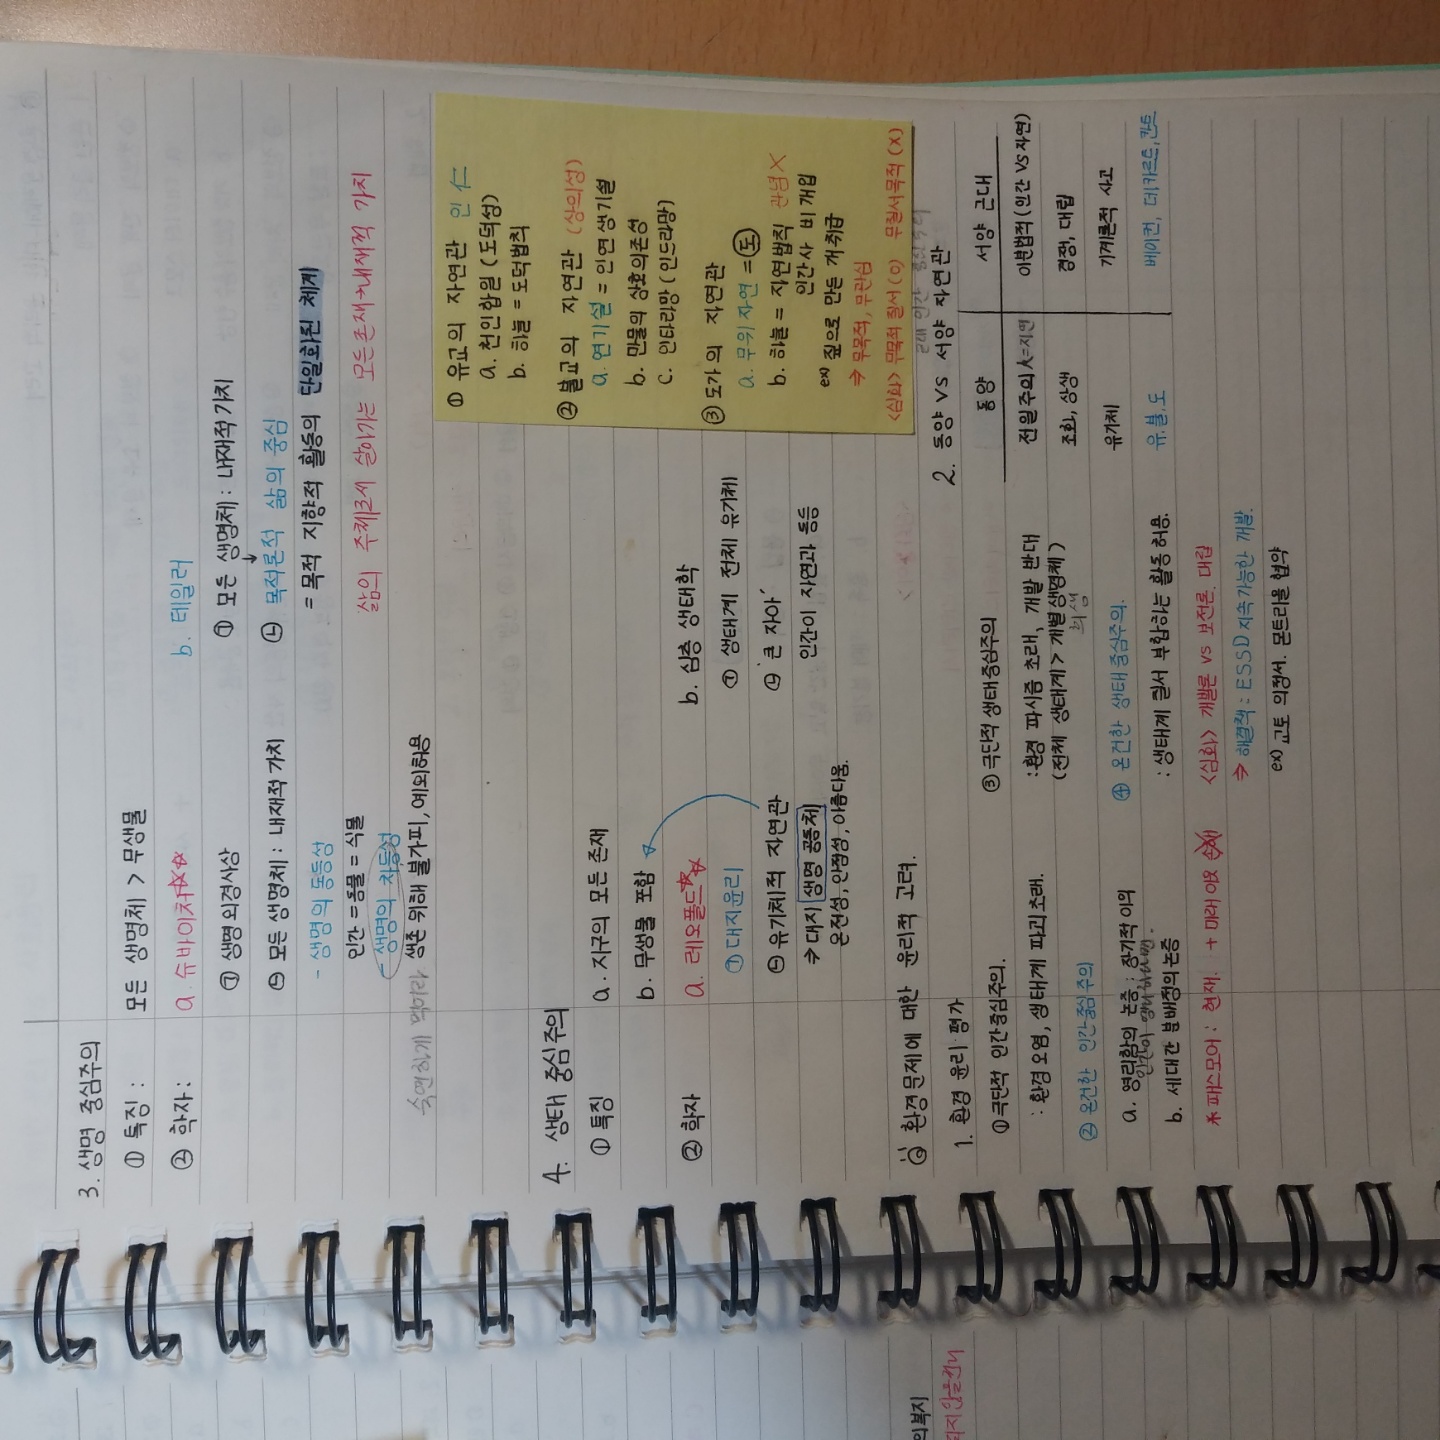 3. 생명 중심주의
① 특징 : 모든 생명체 > 무생물
② 학자 : a. 슈바이처☆☆
㉠ 생명 외경사상
㉡ 모든 생명체 : 내재적 가치
- 생명의 동등성
인간 = 동물 = 식물
- 생명의 차등성
생존 위해 불가피, 예외허용
숙연하게 먹이라
b. 테일러
㉠ 모든 생명체 : 내재적 가치
㉡ 목적론적 삶의 중심
= 목적 지향적 활동의 단일화된 체계
삶의 주체로서 살아가는 모든존재→내재적 가치
4. 생태 중심주의
① 특징
a. 지구의 모든 존재
b. 무생물 포함
② 학자
a. 레오폴드☆☆
㉠ 대지윤리
㉡ 유기체적 자연관
⇒ 대지 생명 공동체
온전성, 안정성, 아름다움.
b. 심층 생태학
㉠ 생태계 전체 유기체
㉡ '큰 자아'
인간이 자연과 동등
① 유교의 자연관 인 仁
a. 천인합일 (도덕성)
b. 하늘 = 도덕법칙
② 불교의 자연관 (상의성)
a. 연기설 = 인연생기설
b. 만물의 상호의존성
c. 인타라망 (인드라망)
③ 도가의 자연관
a. 무위자연 = 도
b. 하늘 = 자연법칙 관념X
인간사 비개입
ex) 짚으로 만든 개 취급
⇒ 무목적, 무관심
<심화> 무목적 질서(O) 무질서목적(X)
환경문제에 대한 윤리적 고려.
1. 환경 윤리 평가
① 극단적 인간중심주의.
: 환경오염, 생태계 파괴 초래.
② 온건한 인간중심주의
a. 영리함의 논증 : 장기적 이익
b. 세대간 분배정의논증
* 패스모어 : 현재. + 미래 이익
③ 극단적 생태중심주의
: 환경 파시즘 초래, 개발 반대
(전체 생태계 > 개별생명체)
희생
④ 온건한 생태중심주의.
: 생태계 질서 부합하는 활동 허용.
<심화> 개발론 vs 보전론. 대립
⇒ 해결책 : ESSD 지속가능한 개발.
ex) 교토 의정서. 몬트리올 협약
2. 동양 vs 서양 자연관
동양 서양 근대
전일주의 人=자연 이분법적 (인간 vs 자연)
조화, 상생 경쟁, 대립
유기체 기계론적 사고
유.불.도 베이컨, 데카르트, 칸트
의복지